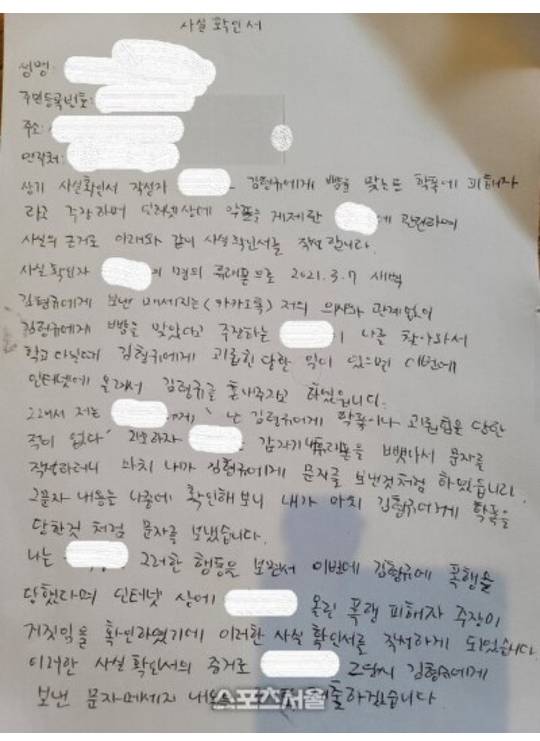 사실확인서
성명:
주민등록번호:
주소:
연락처:
상기 사실확인서 작성자 김형규에게 뺨을 맞는 학폭에 피해자
라고 주장하며 인터넷상에 악플을 게제한 에 관련하여
사실의 근거로 아래와 같이 사실확인서를 작성합니다.
사실확인자 이 명의 휴대폰으로 2021.3.7 새벽
김형규에게 보낸 메세지는(카카오톡) 저의 의사와 관계없이
김형규에게 뺨을 맞았다고 주장하는 이 나를 찾아와서
학교 다닐때 김형규에게 괴롭힘 당한 일이 있으면 이번에
인터넷에 올려서 김형규를 혼내주자고 하였습니다.
그래서 저는 에게 난 김형규에게 학폭이나 괴롭힘을 당한
적이 없다 라고하자 갑자기 휴대폰을 뺏어서 문자를
작성하더니 마치 내가 김형규에게 문자를 보낸것처럼 하였습니다.
그문자 내용을 나중에 확인해보니 내가 마치 김형규에게 학폭을
당한것 처럼 문자를 보냈습니다.
나는 그러한 행동을 보면서 이번에 김형규에 폭행을
당했다며 인터넷 상에 올린 폭행 피해자 주장이
거짓임을 확인하였기에 이러한 사실확인서를 작성하게 되었습니다.
이러한 사실확인서의 증거로 그당시 김형규에게
보낸 문자메세지 내용을 제출하겠습니다
스포츠서울